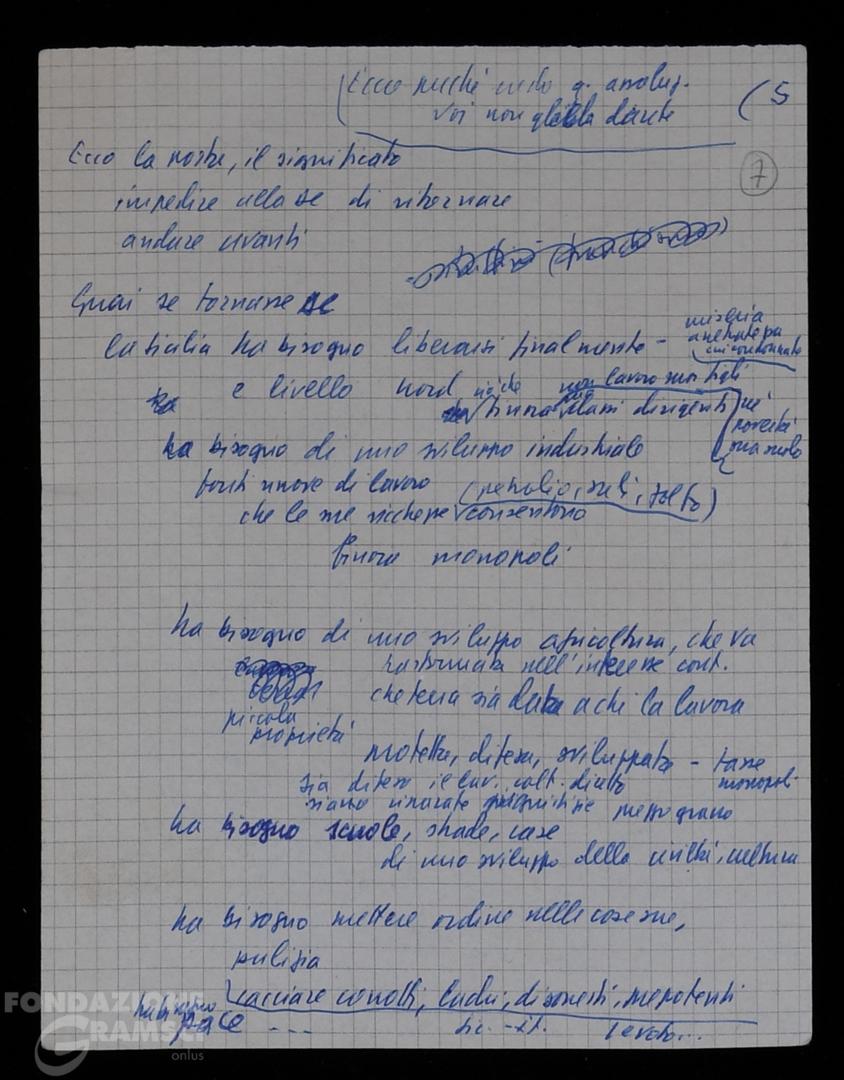 Ecco perché credo q. analus.
voi non gliela diate
(5
7
Ecco la posta, il significato
impedire alla DC di ritornare
andare avanti
Guai se tornasse DC
La Sicilia ha bisogno liberarsi finalmente - miseria
arretratezza
cui condannata
e livello nord
non lavoro suoi figli
finora classi dirigenti
né
povertà
ma solo
ha bisogno di uno sviluppo industriale
fonti nuove di lavoro (petrolio, sali, zolfo)
che le sue ricchezze consentono
Finora monopoli
ha bisogno di uno sviluppo agricoltura, che va
trasformata nell'interesse cont.
che terra sia data a chi la lavora
piccola
proprietà
protetta, difesa, sviluppata - tasse
monopoli
sia difeso il lav. colt. diretto
siano riparate ingiustizie prezzo grano
ha bisogno scuole, strade, case
di uno sviluppo della civiltà, cultura
ha bisogno mettere ordine nelle cose sue,
pulizia
cacciare corrotti, ladri, disonesti, prepotenti
ha bisogno
pace ---
sic. - it.
FONDAZIONE
GRAMSCI
onlus